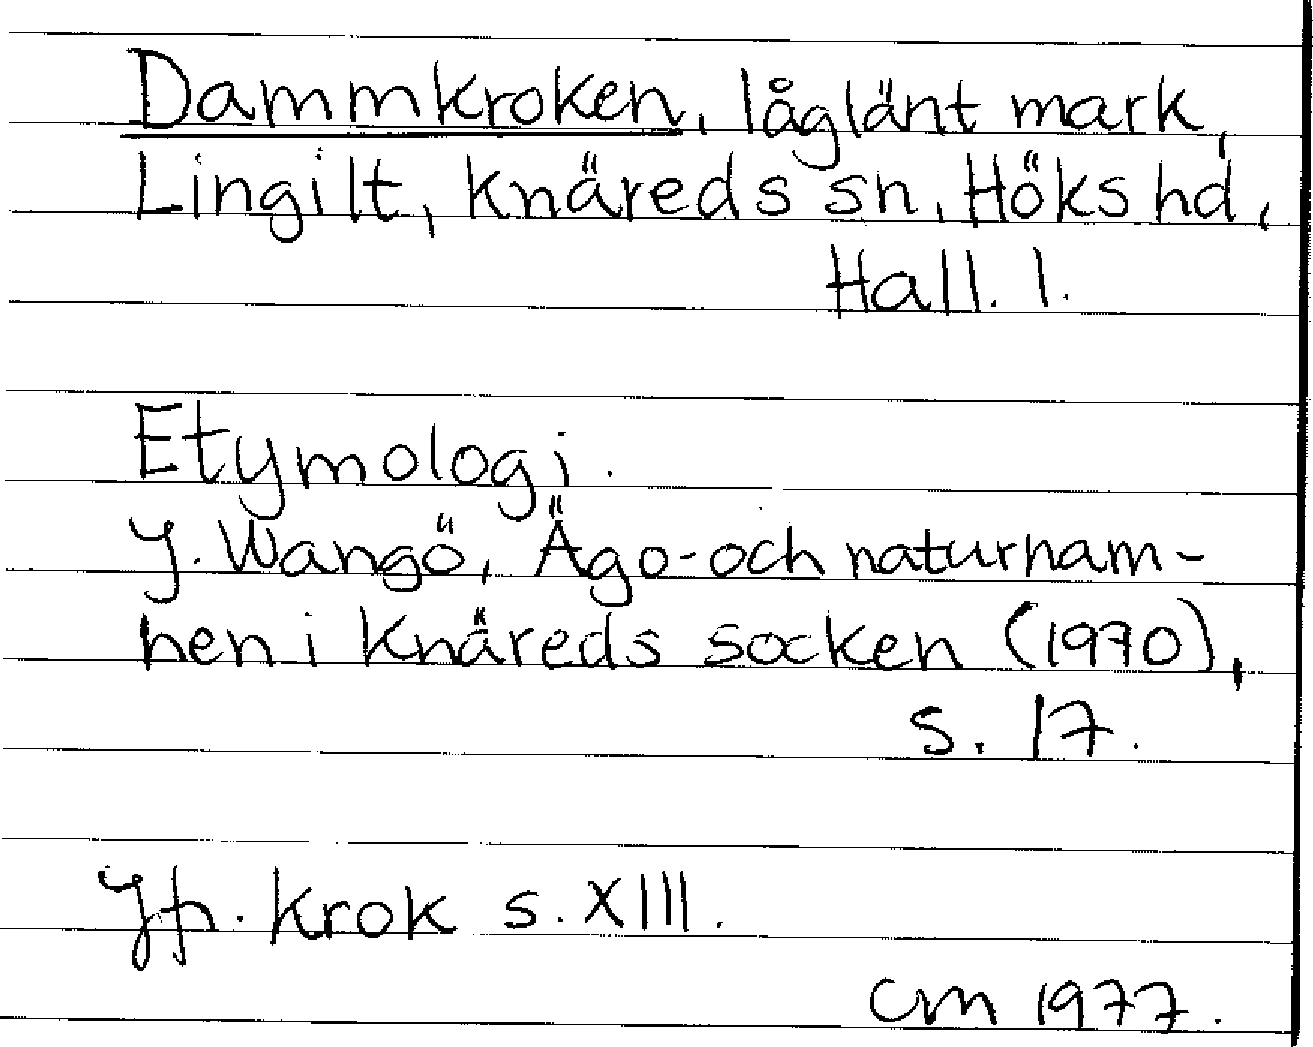 Dammkroken, låglänt mark,
Lingilt, Knäreds sn, Höks hd,
Hall. l.
Etymologi.
J. Wangö, Ägo- och naturnam-
nen i Knäreds socken (1970),
s. 17.
Jfr. krok s. XIII.
CM 1977.